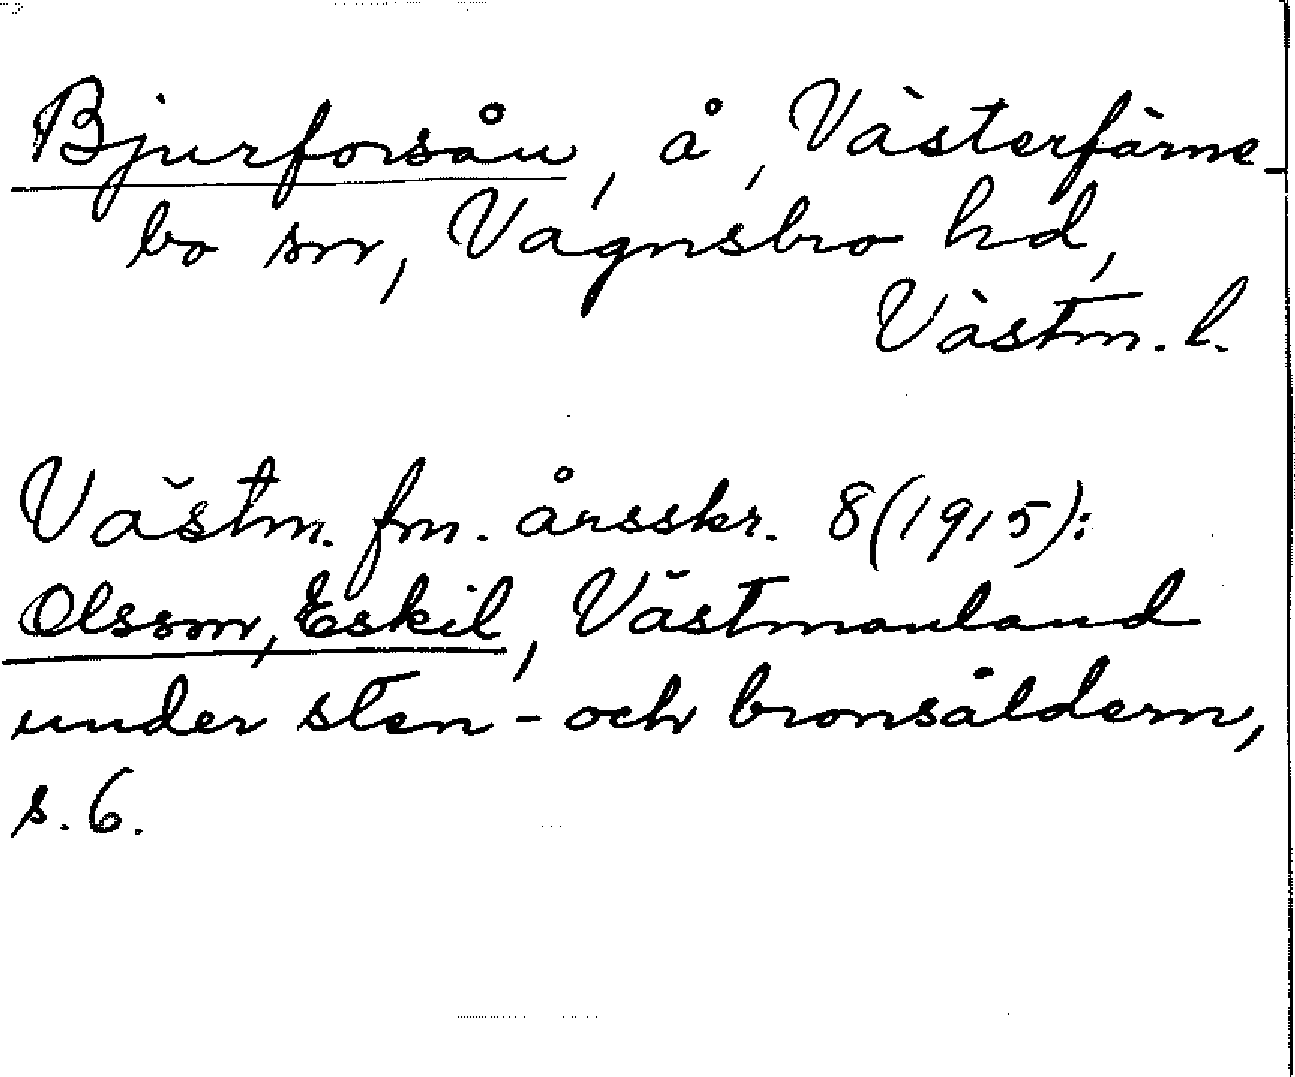 Bjurforsån, å, Västerfärne-
bo sn, Vagnsbro hd,
Västm. l.
Västm. fm. årsskr. 8(1915):
Olsson, Eskil, Västmanland
under sten- och bronsåldern,
s. 6.